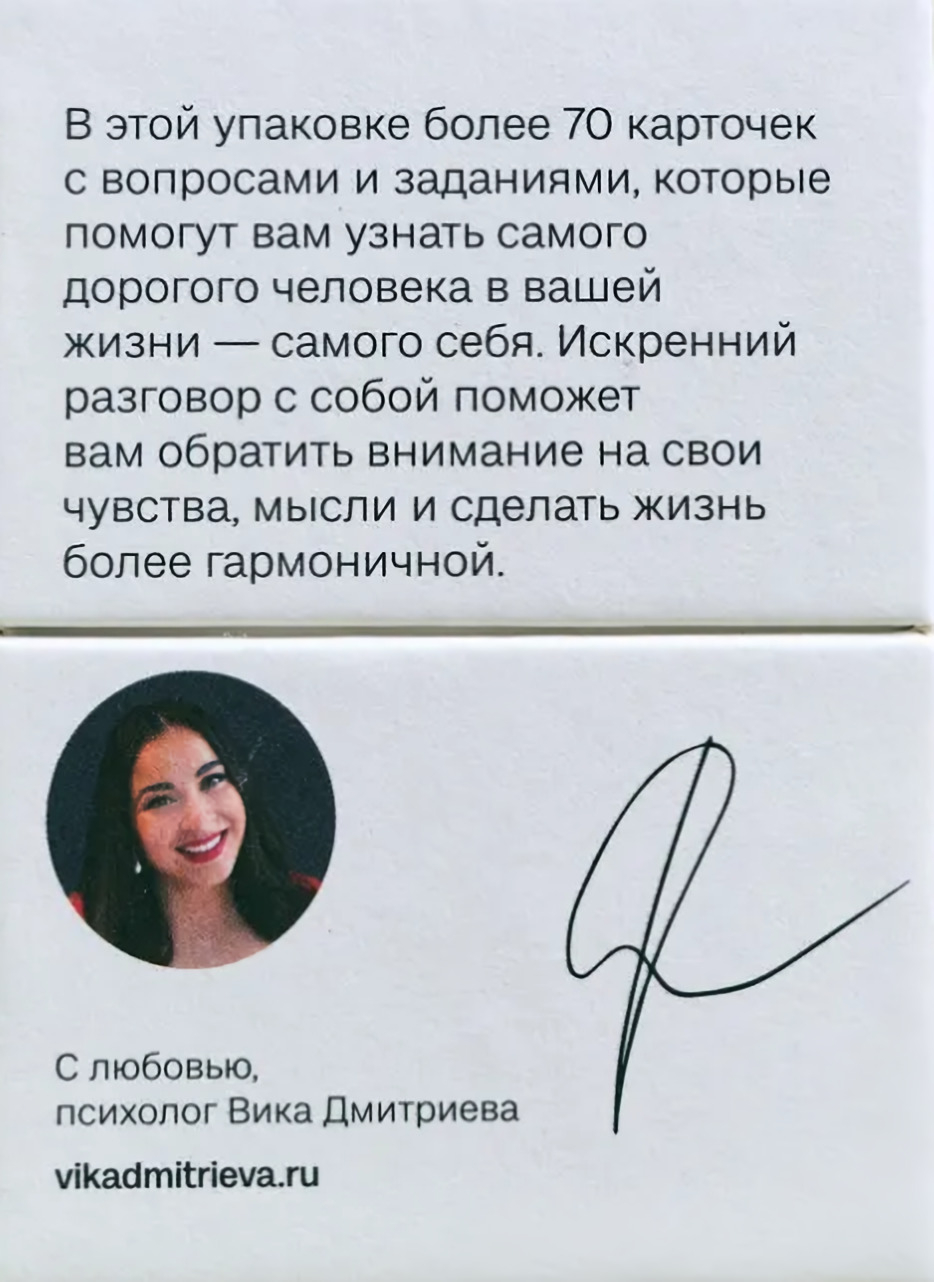 В этой упаковке более 70 карточек
с вопросами и заданиями, которые
помогут вам узнать самого
дорогого человека в вашей
жизни — самого себя. Искренний
разговор с собой поможет
вам обратить внимание на свои
чувства, мысли и сделать жизнь
более гармоничной.
С любовью,
психолог Вика Дмитриева
vikadmitrieva.ru